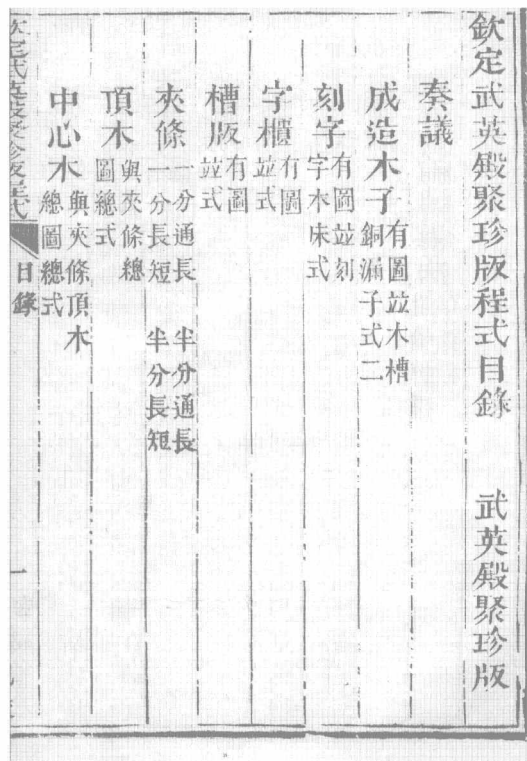 欽定武英殿聚珍版程式目錄　武英殿聚珍版
奏議
成造木子 有圖竝木槽 銅漏子式二
刻字 有圖竝刻 字木床式
字櫃 有圖 竝式
槽版 有圖 竝式
夾條 一分通長 半分通長 一分長短 半分長短
頂木 與夾條總 圖總式
中心木 與夾條頂木 總圖總式
欽定武英殿聚珍版程式 目錄 一